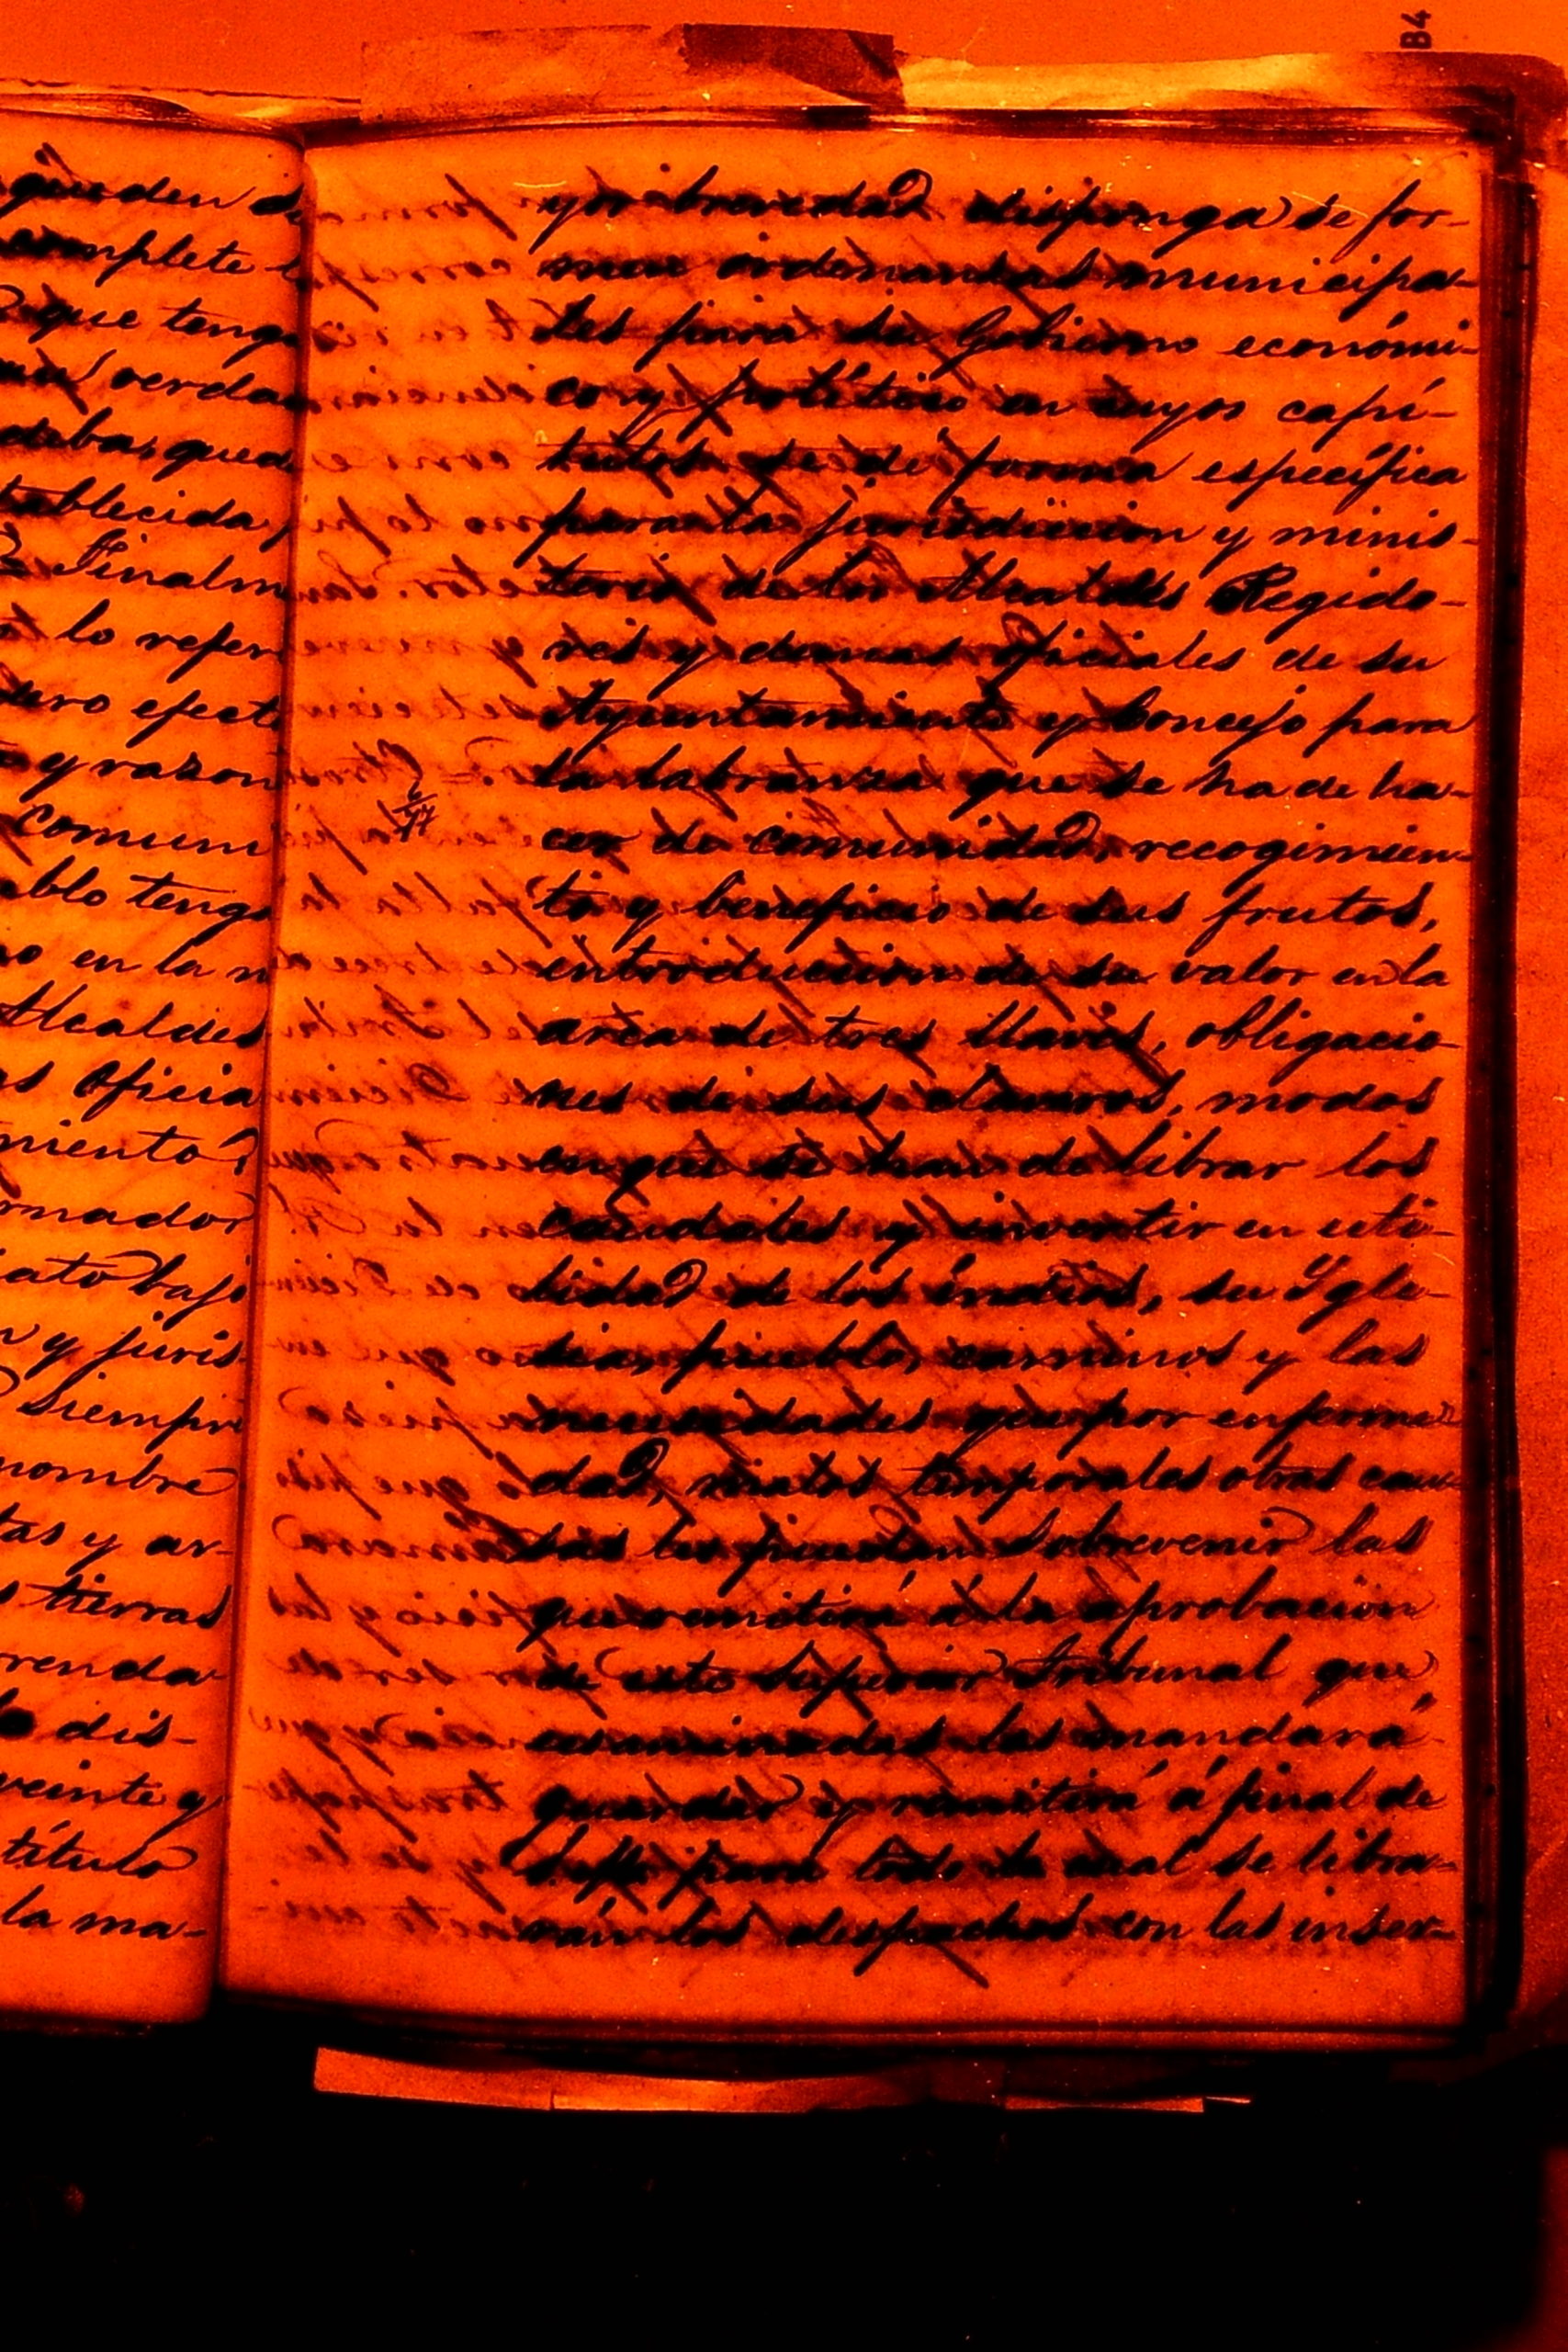 queden
complete
que tenga
verda
deba, qued
tablecida
Finalm
lo refer
efect
y razon
comuni
tenga
en la
Alcaldes
Oficia
miento
mador
ato bajo
y juris-
Siempre
nombre
tas y ar-
tierras
renda
dis-
veinte y
título
la ma-
B4
yor brevedad disponga se for-
men ordenanzas municipa-
les para su Gobierno económi-
co y político en cuyos capí-
tulos se dé forma específica
para la jurisdiccion y minis-
terio de los Alcaldes Regido-
res y demas oficiales de su
Ayuntamiento y Concejo para
la labranza que se ha de ha-
cer de comunidad, recogimien-
to y beneficio de sus frutos,
introduccion de su valor en la
arca de tres llaves, obligacio-
nes de sus claveros, modos
en que se han de librar los
caudales y invertir en uti-
lidad de los indios, su Ygle-
sia, pueblo, caminos y las
necesidades que por enferme
dad, malos temporales otras cau
sas les puedan sobrevenir las
que remitirá á la aprobacion
de este Superior Tribunal que
examinadas las mandará
guardar y remitirá á final de
para todo lo cual se libra-
rán los despachos con las inser-